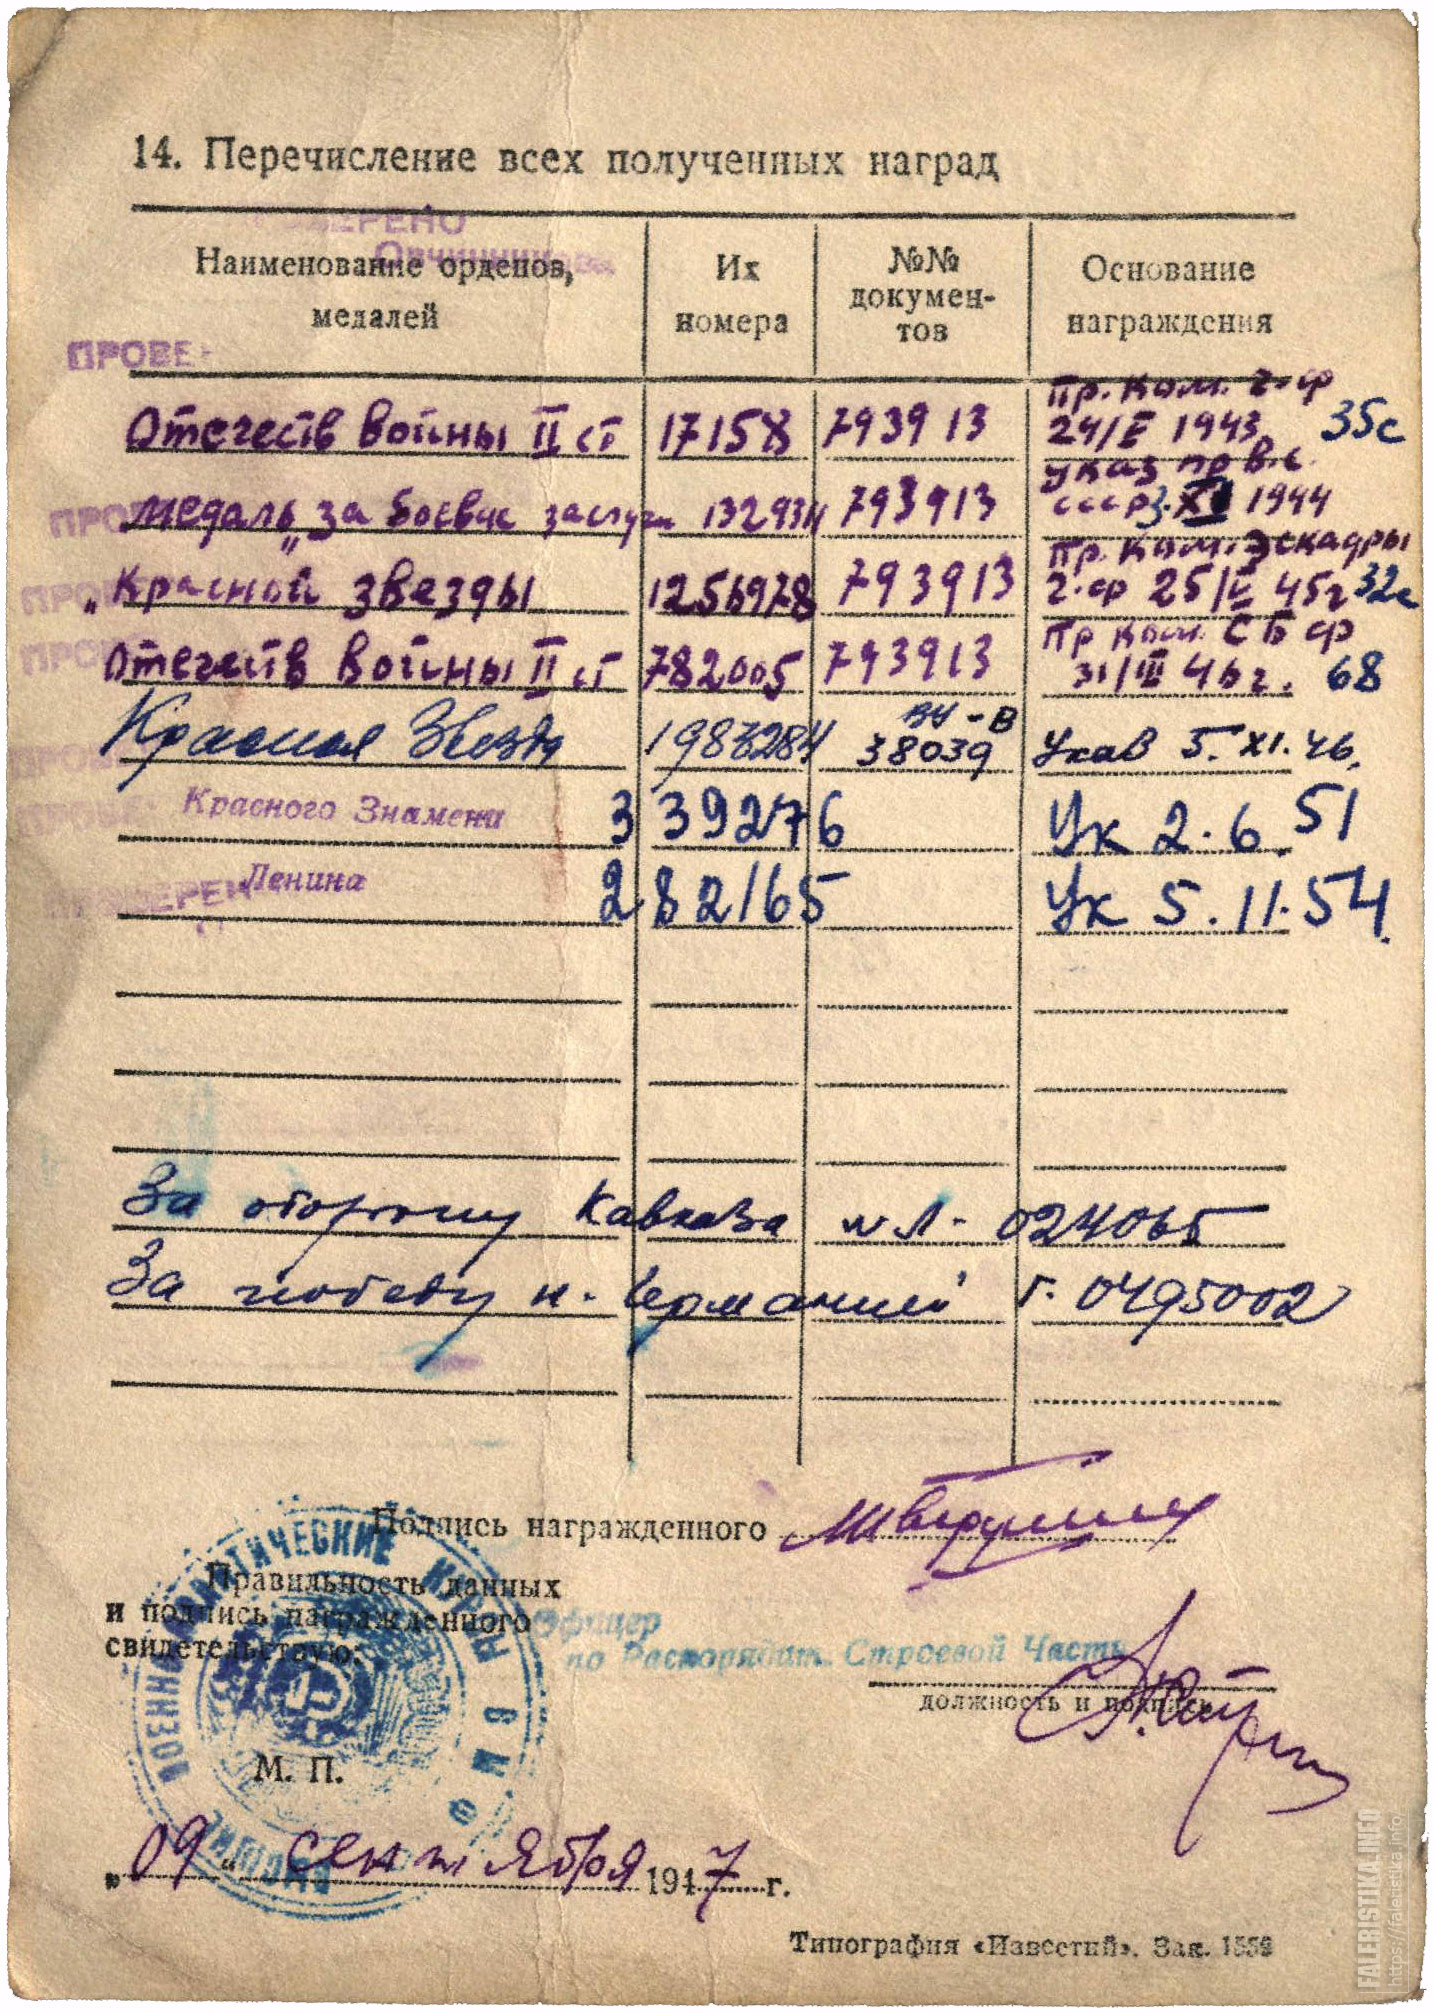 14. Перечисление всех полученных наград
ПРОВЕРЕНО
Овчинникова
Наименование орденов, медалей
Их номера
№№ докумен-
тов
Основание награждения
ПРОВЕ
Отечеств Войны II ст 17158 793913 Пр. Ком. Ч.ф 24/ 1943 35с
ПРО
медаль „За боевые заслуги 132934 793913 Указ пр В.С. СССР 3.XI 1944
ПРО
„Красной Звезды 1256978 793913 Пр. Ком. Эскадры Ч.ф 25/ 45г 32с
ПРО
Отечеств Войны II ст 782005 793913 Пр Ком. С Б ф 31/III 46г. 68
ПРО
Красная Звезда 1983284 38039 В Указ 5.XI.46.
Красного Знамени 339276 Ук 2.6.51
ПРОВЕРЕН
Ленина 282165 Ук 5.11.54.
За оборону Кавказа № Л-024065
За победу н. Германией Г. 0495002
Подпись награжденного
Правильность данных
и подпись награжденного
свидетельствую:
Офицер
по Распорядит. Строевой Часть
должность и подпись
М. П.
„09“ сентября 1947 г.
Типография «Известий». Зак. 1552
FALERISTIKA.INFO
https://faleristika.info